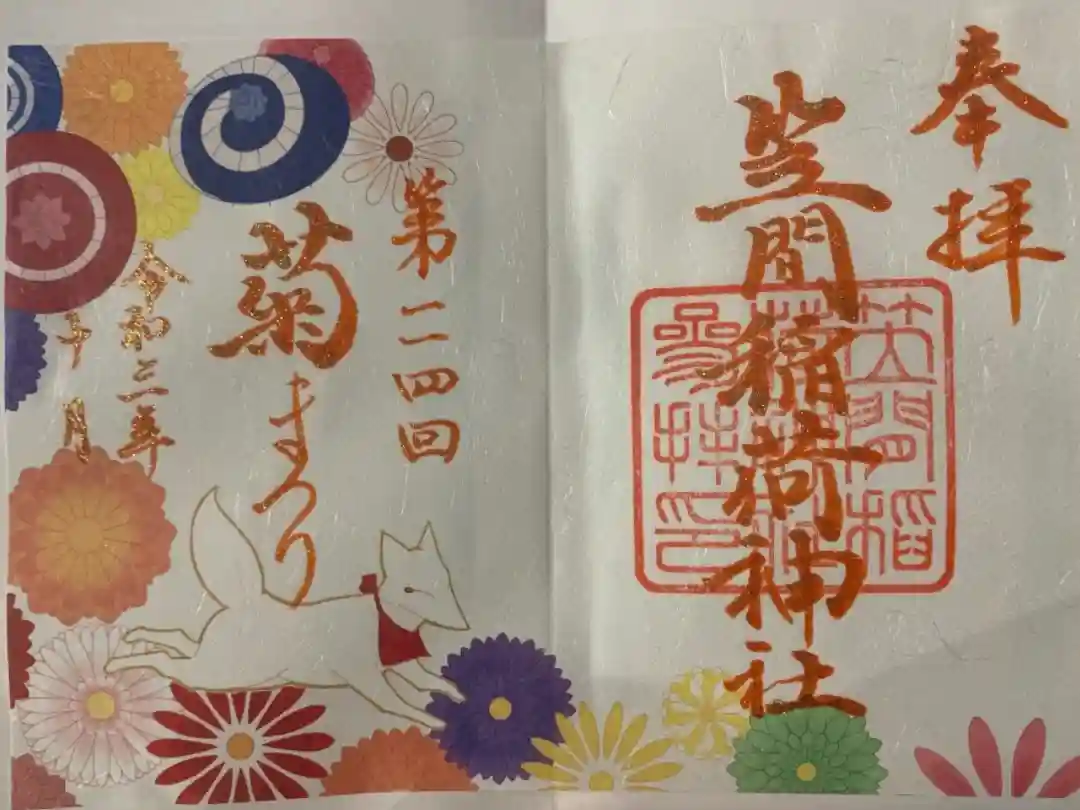 奉拝
笠間稲荷神社
笠間稲
参拝印
第一一四回
菊まつり
令和三年
十月